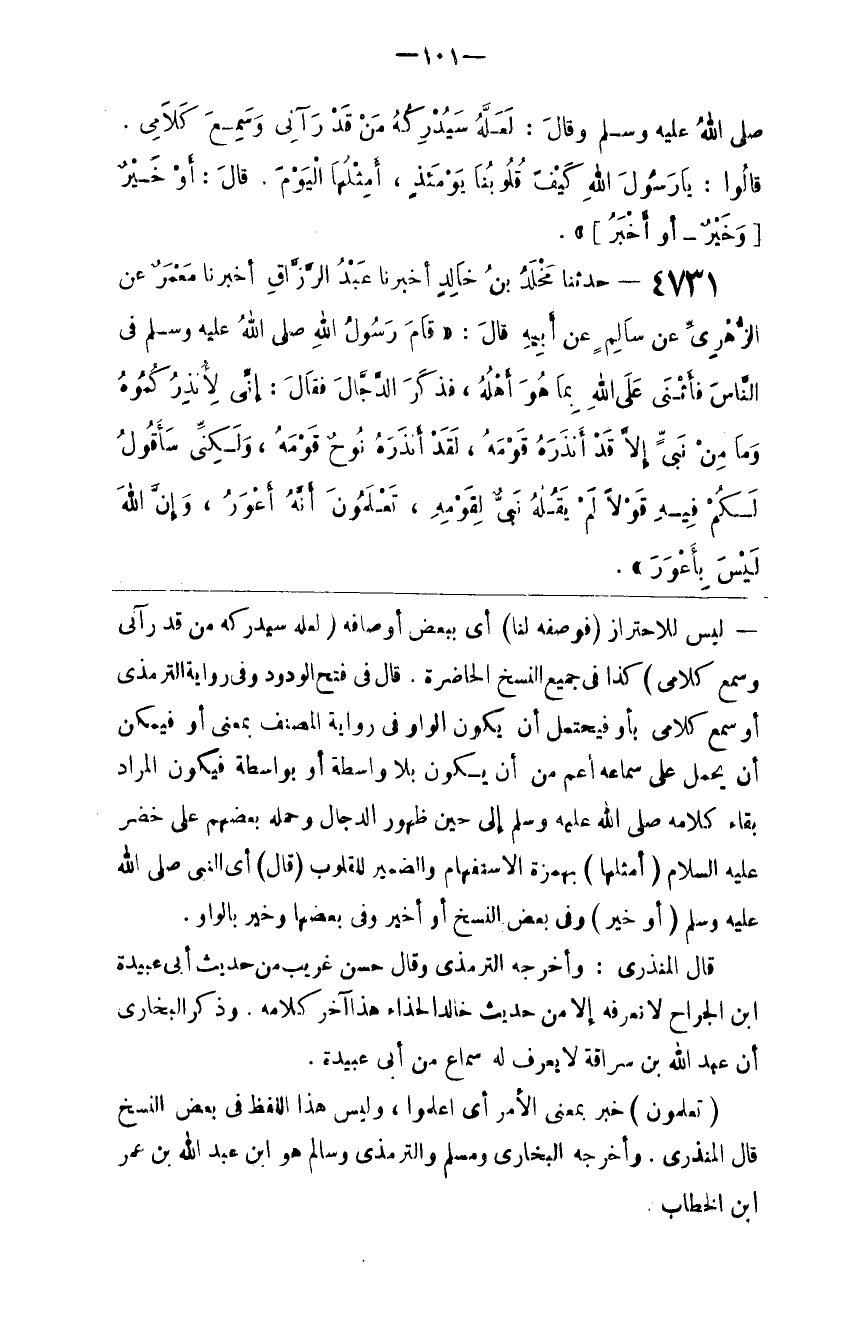 —١٠١—
صلى اللهُ عليه وسلم وقالَ : لَعَلَّهُ سَيُدْرِكُهُ مَنْ قَدْ رَآنِى وَسَمِعَ كَلَامِى .
قالُوا : يَارَسُولَ اللهِ كَيْفَ قُلُوبُنَا يَوْمَئِذٍ ، أَمِثْلُهَا الْيَوْمَ . قالَ : أَوْ خَيْرٌ
[ وَخَيْرٌ – أو أَخْيَرُ ] » .
٤٧٣١ – حدثنا مَخْلَدُ بنُ خَالِدٍ أخبرنا عَبْدُ الرَّزَّاقِ أخبرنا مَعْمَرٌ عن
الزُّهْرِىِّ عن سَالِمٍ عن أَبِيهِ قالَ : « قَامَ رَسُولُ اللهِ صلى اللهُ عليه وسلم فى
النَّاسَ فَأَثْنَى عَلَى اللهِ بِمَا هُوَ أَهْلُهُ ، فَذَكَرَ الدَّجَّالَ فقالَ : إِنِّى لَأُنْذِرُكُمُوهُ
وَمَا مِنْ نَبِىٍّ إِلاَّ قَدْ أَنْذَرَهُ قَوْمَهُ ، لَقَدْ أَنْذَرَهُ نُوحٌ قَوْمَهُ ، وَلَكِنِّى سَأَقُولُ
لَكُمْ فِيهِ قَوْلاً لَمْ يَقُلْهُ نَبِىٌّ لِقَوْمِهِ ، تَعْلَمُونَ أَنَّهُ أَعْوَرُ ، وَإِنَّ اللهَ
لَيْسَ بِأَعْوَرَ » .
– ليس للاحتراز (فوصفه لنا) أى ببعض أوصافه ( لعله سيدركه من قد رآنى
وسمع كلامى ) كذا فى جميع النسخ الحاضرة . قال فى فتح الودود وفى رواية الترمذى
أو سمع كلامى بأو فيحتمل أن يكون الواو فى رواية المصنف بمعنى أو فيمكن
أن يحمل على سماعه أعم من أن يكون بلا واسطة أو بواسطة فيكون المراد
بقاء كلامه صلى الله عليه وسلم إلى حين ظهور الدجال وحمله بعضهم على خضر
عليه السلام ( أمثلها ) بهمزة الاستفهام والضمير للقلوب (قال) أى النبى صلى الله
عليه وسلم ( أو خير ) وفى بعض النسخ أو أخير وفى بعضها وخير بالواو .
قال المنذرى : وأخرجه الترمذى وقال حسن غريب من حديث أبى عبيدة
ابن الجراح لا نعرفه إلا من حديث خالد الحذاء هذا آخر كلامه . وذكر البخارى
أن عبد الله بن سراقة لا يعرف له سماع من أبى عبيدة .
( تعلمون ) خبر بمعنى الأمر أى اعلموا ، وليس هذا اللفظ فى بعض النسخ
قال المنذرى . وأخرجه البخارى ومسلم والترمذى وسالم هو ابن عبد الله بن عمر
ابن الخطاب .